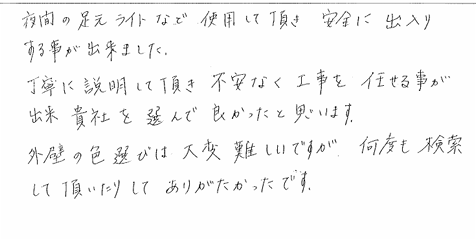 夜間の足元ライトなど使用して頂き 安全に出入り
する事が出来ました。
丁寧に説明して頂き 不安なく工事を任せる事が
出来 貴社を選んで良かったと思います。
外壁の色選びは大変難しいですが、何度も検索
して頂いたりして ありがたかったです。